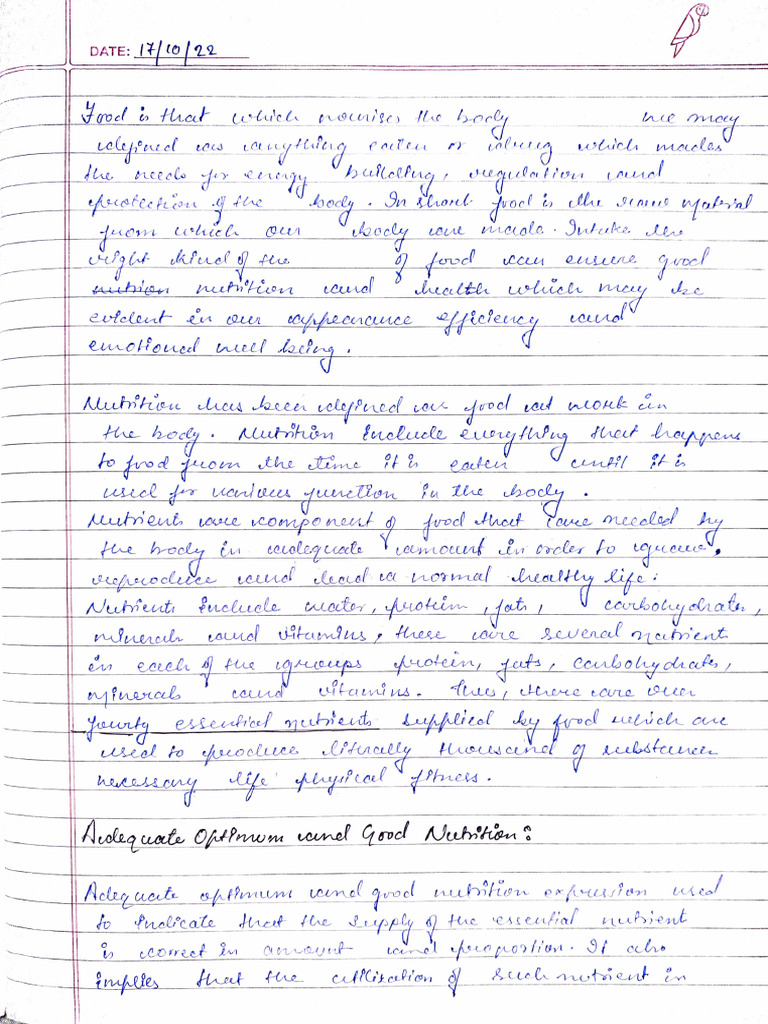 DATE: 17/10/22
Food is that which nourises the body we may
defined as anything eaten or which
the needs for energy building, regulation and
protection of the body. In short food is the material
from which our body are made. Intake the
right kind of the of food can ensure good
nutrion nutrition and health which may be
evident in our appearance efficiency and
emotional well being.
Nutrition has been defined as food at work in
the body. Nutrition include everything that happens
to food from the time it is eaten until it is
used for various function in the body.
Nutrients are component of food that are needed by
the body in adequate amount in order to
reproduce and lead a normal healthy life:
Nutrients include water, protein, fats, carbohydrates,
minerals and vitamins, there are several nutrient
in each of the groups protein, fats, carbohydrates,
minerals and vitamins. Thus, there are over
fourty essential nutrients supplied by food which are
used to produce literally thousand of substances
necessary life physical fitness.
Adequate Optimum and Good Nutrition:
Adequate optimum and good nutrition expression used
to indicate that the supply of the essential nutrient
is correct in amount and proportion. It also
implies that the utilization of such nutrient in